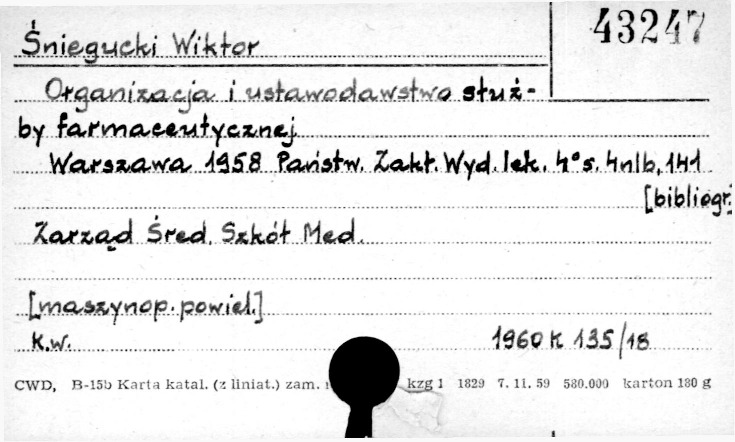 43247
Śniegucki Wiktor
Organizacja i ustawodawstwo służ-
by farmaceutycznej
Warszawa 1958 Państw. Zakł. Wyd. lek. 4° s. 4nlb, 141
[bibliogr.]
Zarząd Śred. Szkół Med.
[maszynop. powiel.]
K.w. 1960 K 135/18
CWD, B-15b Karta katal. (z liniat.) zam. kzg 1 1829 7. 11. 59 580.000 karton 180 g